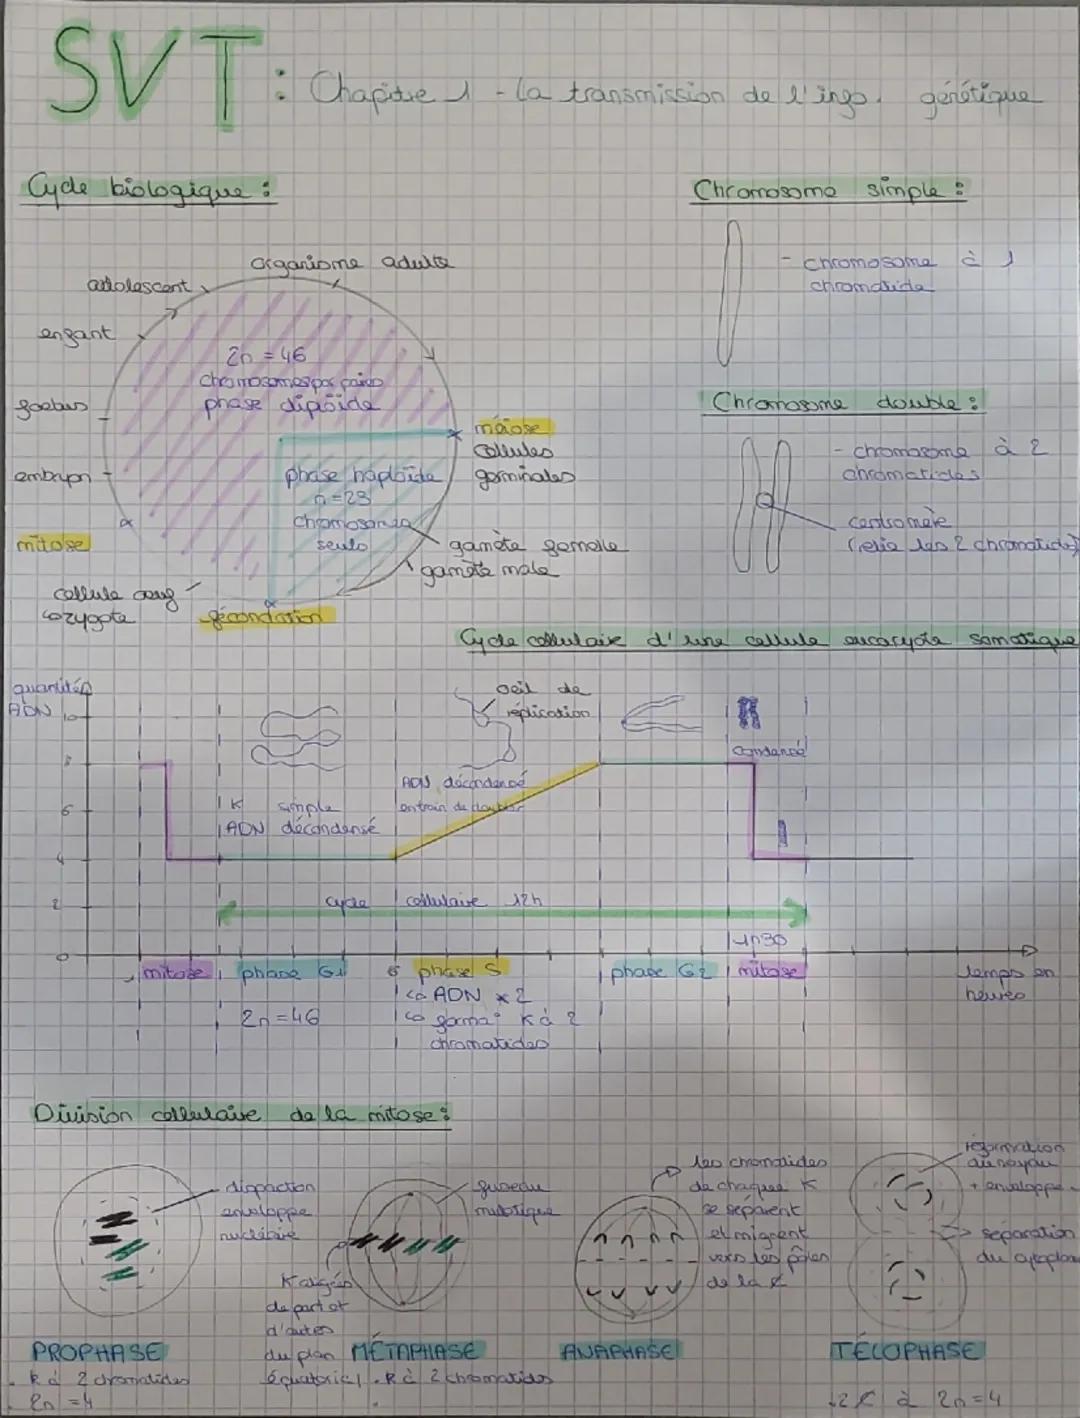 SVT : Chapitre 1 - La transmission de l'info. génétique
Cycle biologique :
organisme adulte
adolescent
enfant
foetus
embryon
mitose
cellule oeuf
zygote
fécondation
2n = 46
chromosomes par paires
phase diploïde
phase haploïde
n = 23
chromosomes
seuls
méiose
cellules
germinales
gamète femelle
gamète male
Chromosome simple :
- chromosome à 1
chromatide
Chromosome double :
- chromosome à 2
chromatides
centromère
(relie les 2 chromatides)
Cycle cellulaire d'une cellule eucaryote somatique
quantité
ADN
10
8
6
4
2
0
K simple
ADN décondensé
oeil de
réplication
ADN décondensé
entrain de doubler
condensé
cycle cellulaire 12h
1h30
mitose
phase G1
2n = 46
6
phase S
↳ ADN x 2
↳ forma° K à 2
chromatides
phase G2
mitose
temps en
heures
Division cellulaire de la mitose :
dispaction
enveloppe
nucléaire
PROPHASE
. K à 2 chromatides
. 2n = 4
fuseau
mitotique
K alignés
de part et
d'autres
du plan
équatorial
MÉTAPHASE
. K à 2 chromatides
les chromatides
de chaque K
se séparent
et migrent
vers les pôles
de la ₡
ANAPHASE
réformation
du noyau
+ enveloppe
séparation
du cytoplasme
TÉLOPHASE
. 2 ₡ à 2n = 4